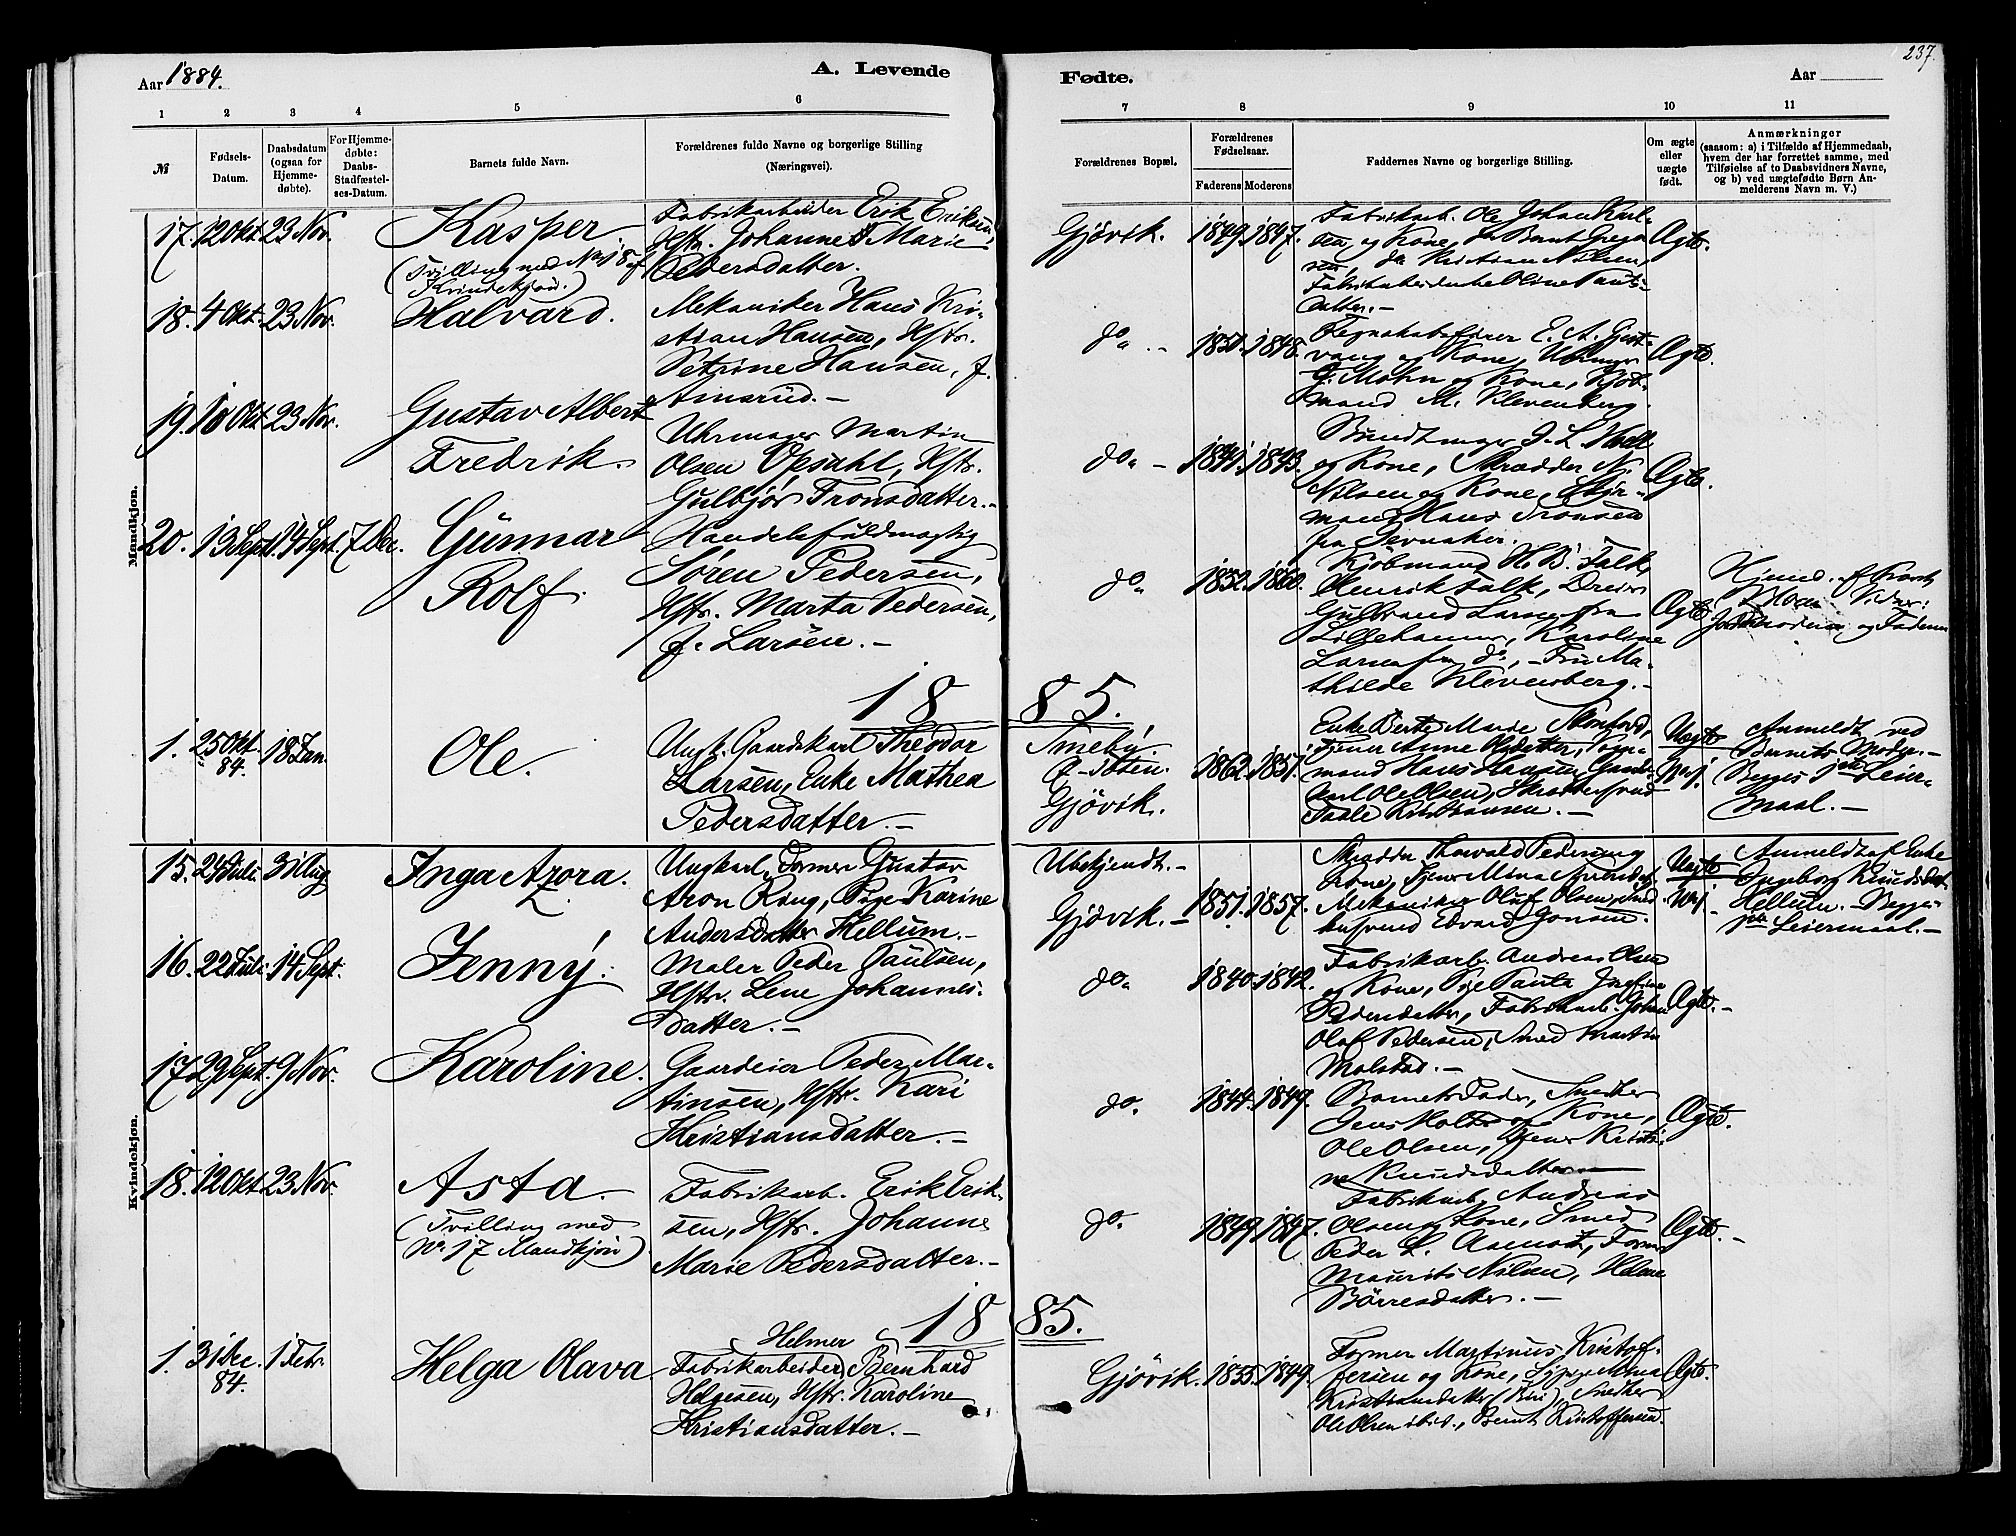 237.
Aar 1884.
A. Levende
Fødte.
Aar
1 2 3 4 5 6 7 8 9 10 11
№
Fødsels-
Datum.
Daabsdatum
(ogsaa for
Hjemme-
døbte).
For Hjemme-
døbte:
Daabs-
Stadfæstel-
ses-Datum.
Barnets fulde Navn.
Forældrenes fulde Navne og borgerlige Stilling
(Næringsvei).
Forældrenes Bopæl.
Forældrenes
Fødselsaar.
Faderens Moderens
Faddernes Navne og borgerlige Stilling.
Om ægte
eller
uægte
født.
Anmærkninger
(saasom: a) i Tilfælde af Hjemmedaab,
hvem der har forrettet samme, med
Tilføielse af to Daabsvidners Navne,
og b) ved uægtefødte Børn An-
melderens Navn m. V.)
Mandkjøn.
17. 12 Okt. 23 Nov.
Kasper
(Tvilling med No 18 af
Kvindekjøn.)
Fabrikarbeider Erik Eriksen,
Hstr. Johanne Marie
Pedersdatter.
Gjøvik. 1849. 1847.
Fabrikarb. Ole Johan Karl-
sen og Kone,
Kristian Nilsen,
Oline Pauls-
datter.-
Ægte.
18. 4 Okt. 23 Nov.
Halvard.
Mekaniker Hans Kri-
stian Hansen, Hstr.
Petrine Hansen, f.
Ainsrud.-
do.- 1850. 1848.
Regnskabsfører E. A. Gjest-
vang og Kone,
G. Mohn og Kone, Kjøb-
mand M. Klevenberg.
Ægte.
19. 10 Okt. 23 Nov.
Gustav Albert
Fredrik.
Uhrmager Martin
Olsen Opsahl, Hstr.
Gulbjør Tronsdatter.-
do.- 1841. 1843.
Bundtmager J. L.
og Kone, Skrædder N.
Nilsen og Kone, Styr-
mand Hans Tronsen
fra Jevnaker.
Ægte.
20. 13 Sept. 14 Sept. 7 Dec.
Gunnar
Rolf.
Handelsfuldmægtig
Søren Pedersen,
Hstr. Marta Pedersen,
f. Larsen.-
do. 1852. 1860.
Kjøbmand H. B. Falk,
Henrik Falk, Dreier
Gulbrand Larsen fra
Lillehammer, Karoline
Larsen fra do., Fru Ma-
thilde Klevenberg.-
Ægte
Hjemd. af
Moe. Vidner:
Jordemoderen og Faderen
1885.
1. 25 Okt. 84. 18 Jan.
Ole.
Ungk. Gaardskarl Theodor
Larsen, Enke Mathea
Pedersdatter.-
Smeby,
Gjøvik. 1862. 1851.
Enke Berte Marie
mand Hans Hansen, Gaards-
karl Ole Olsen,
Kristiansen.-
Uægte
Anmeldt ved
Barnets Moder.-
Begges 1ste Leier-
maal.-
Kvindekjøn.
15. 24 Juli. 31 Aug
Inga Azora.
Ungkarl, Former Gustav
Aron Ring, Pige Karine
Andersdatter Hellum.-
Ubekjendt.-
Gjøvik.- 1851. 1857.
Skrædder Thorvald Pedersen og
Kone,
Mekaniker Oluf Olsen,
Edvard Jonsen.
Uægte
Anmeldt af Enke
Ingeborg Knudsdat.
Hellum.- Begges
1ste Leiermaal.-
16. 22 Juli. 14 Sept.
Jenny.
Maler Peder Paulsen,
Hstr. Lene Johannes-
datter.-
do. 1840. 1842.
Fabrikarb. Andreas Olsen
og Kone, Pige
Pedersdatter, Fabrikarb. Johan
Olaf Pedersen, Smed Martin
Molstad.-
Ægte.-
17. 29 Sept. 9 Nov.
Karoline.
Gaardeier Peder Mar-
tinsen, Hstr. Kari
Kristiansdatter.-
do. 1844. 1849.
Barnets Fader, Snedker
Jens Holter og Kone,
Ole Olsen, Tjener Kristi-
ne Knudsdatter
Ægte.
18. 12 Okt. 23 Nov.
Asta.
(Tvilling med
No. 17 Mandkjøn)
Fabrikarb. Erik Erik-
sen, Hstr. Johanne
Marie Pedersdatter.-
do. 1849. 1847.
Fabrikarb. Andreas
Olsen og Kone, Smed
Peder L. Former
Maurits Nilsen, Helene
Børresdatter.-
Ægte.-
1885.
1. 31 Dec. 84. 1 Febr.
Helga Olava
Helmer
Fabrikarbeider, Bernhard
Helgesen, Hstr. Karoline
Kristiansdatter.-
Gjøvik. 1855. 1849.
Former Martinus Kristof-
fersen og Kone, Pige Mina
Kristiansdatter, Snedker
Ole Olsen ibid., Bernt Kristoffersen.
Ægte.